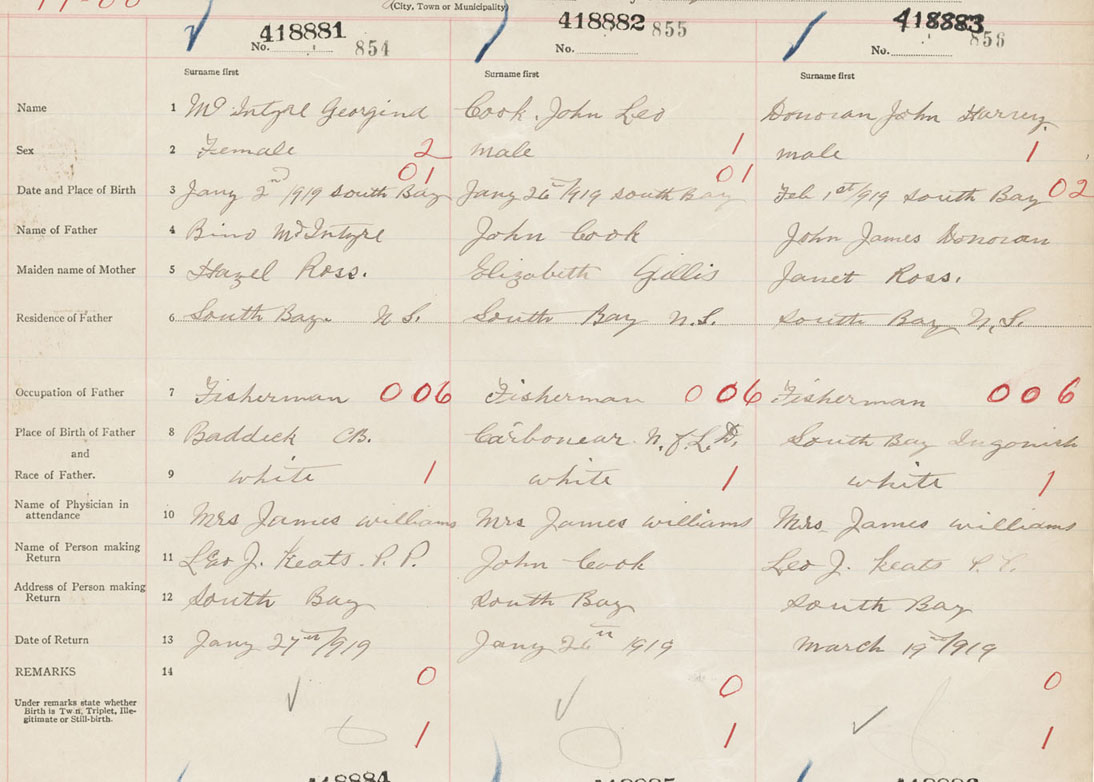 (City, Town or Municipality)
418881 418882 418883
No. 854 No. 855 No. 856
Surname first Surname first Surname first
Name 1 McIntyre Georgind Cook. John Leo Donovan John Harvey.
Sex 2 Female 2 male 1 male 1
01 01 02
Date and Place of Birth 3 Jany 2nd 1919 South Bay Jany 26th 1919 South Bay Feb 1st/1919 South Bay
Name of Father 4 Bino McIntyre John Cook John James Donovan
Maiden name of Mother 5 Hazel Ross. Elizabeth Gillis Janet Ross.
Residence of Father 6 South Bay. N S. South Bay N.S. South Bay N.S.
Occupation of Father 7 Fisherman 006 Fisherman 006 Fisherman 006
Place of Birth of Father 8 Baddeck CB. Carbonear N.f.L.D. South Bay Ingonish
and
Race of Father. 9 white 1 white 1 white 1
Name of Physician in
attendance 10 Mrs James williams Mrs James williams Mrs. James williams
Name of Person making
Return 11 Leo J. Keats. P.P. John Cook Leo J. Keats P.P.
Address of Person making
Return 12 South Bay South Bay South Bay
Date of Return 13 Jany 27th/1919 Jany 26th 1919 March 19th/1919
REMARKS 14 0 0 0
Under remarks state whether
Birth is Twin, Triplet, Ille-
gitimate or Still-birth.
1 1 1
418884